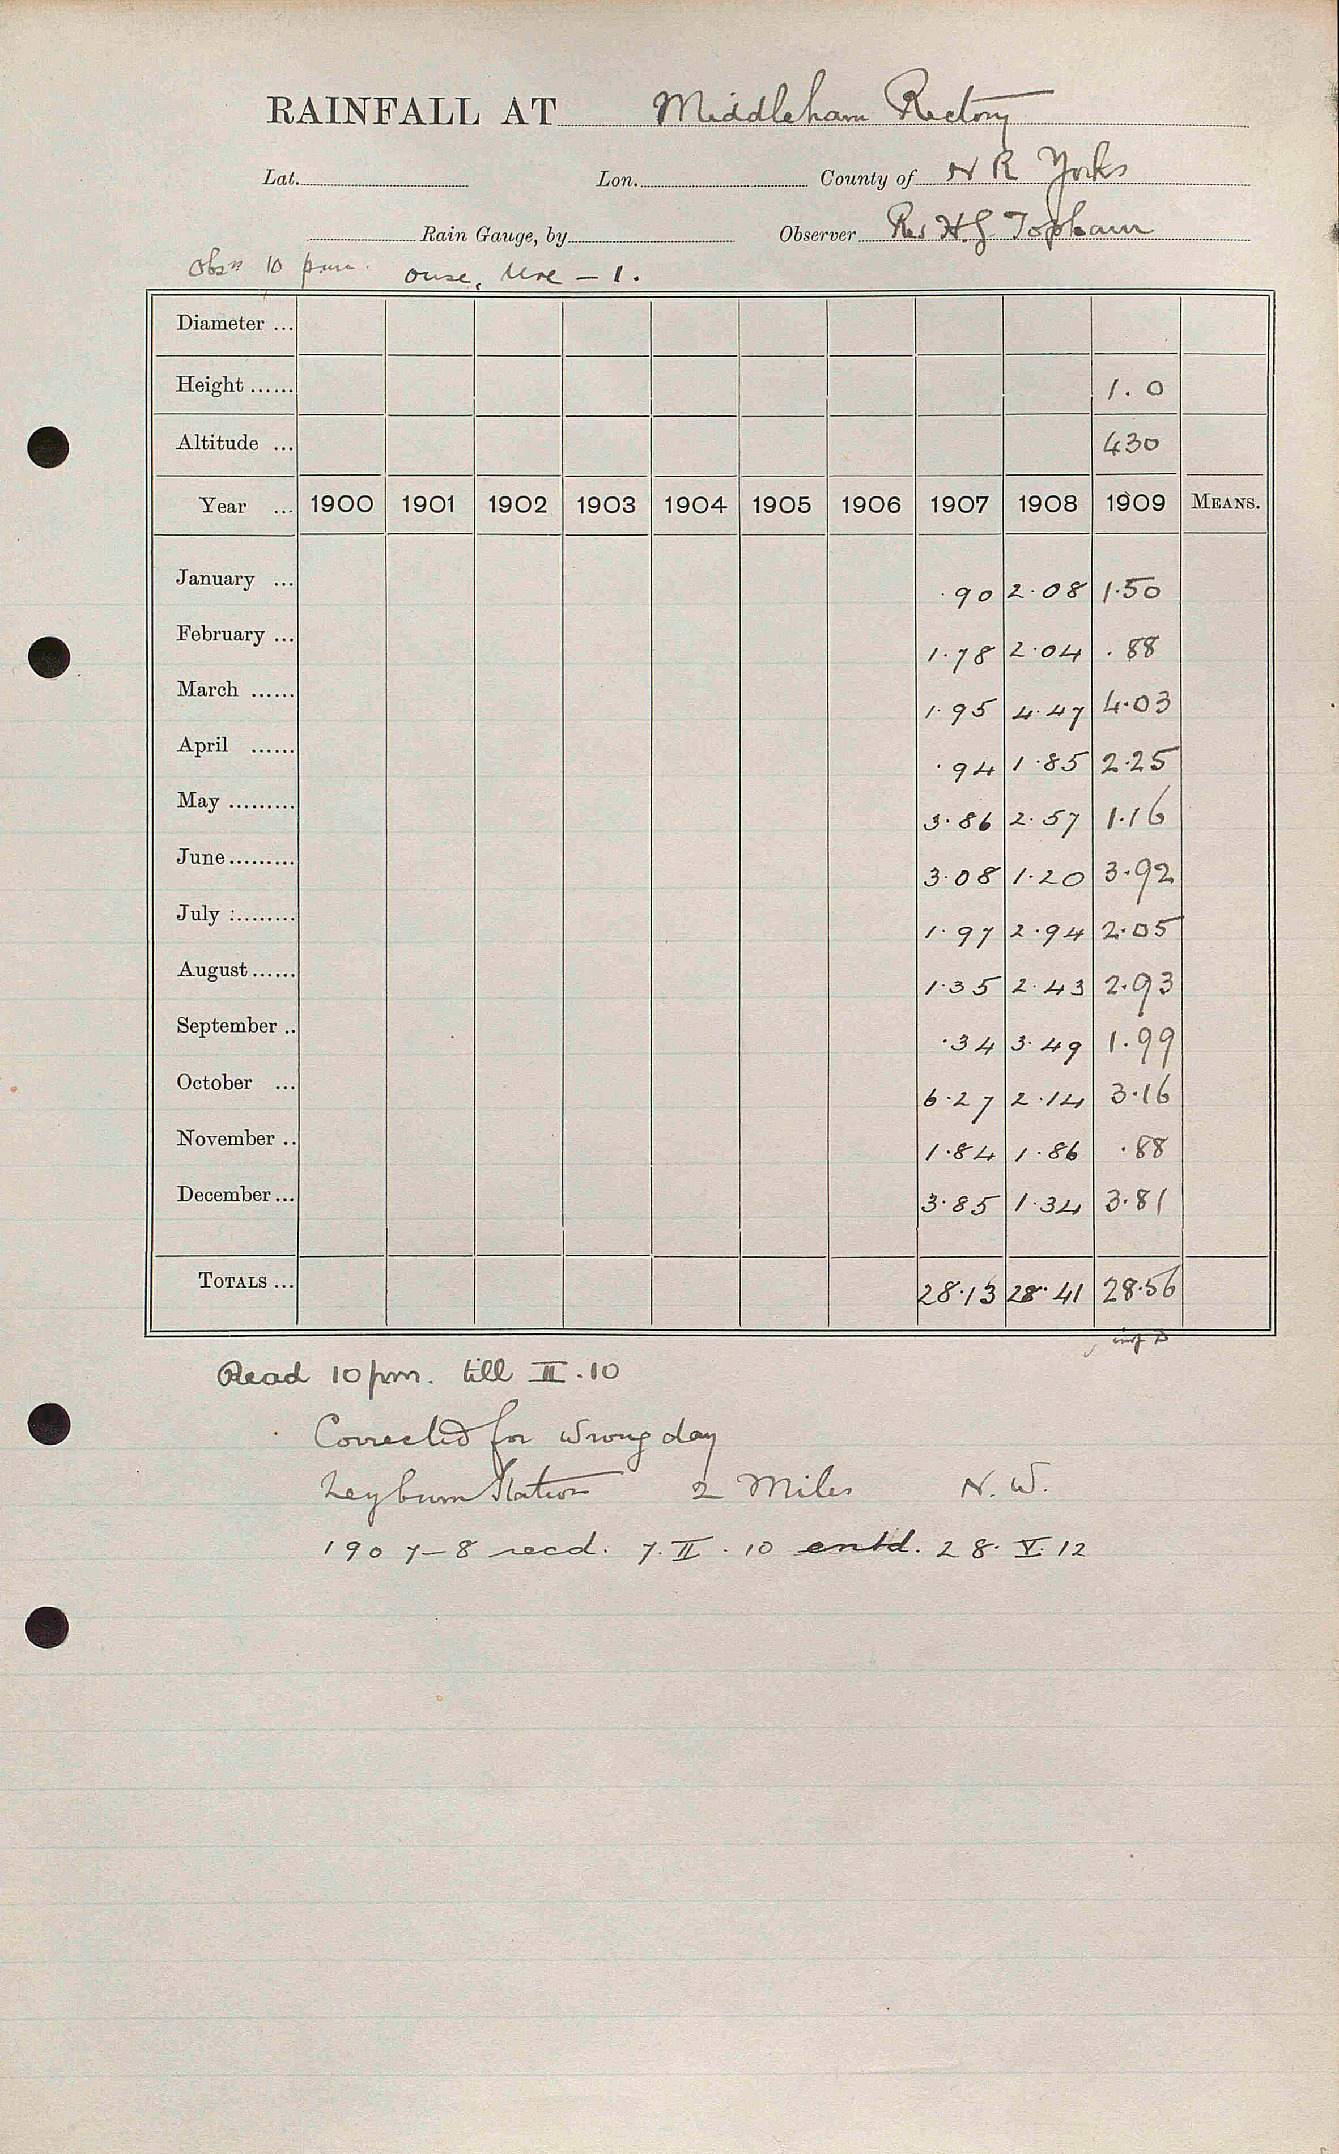 RAINFALL AT Middleham Rectory
Lat. Lon. County of N R Yorks
Rain Gauge, by Observer Rev H. G Topham
Obsn 10 pm. Ouse, Ure — 1.
Diameter ...
Height ...... 1.0
Altitude ... 430
Year ... 1900 1901 1902 1903 1904 1905 1906 1907 1908 1909 MEANS.
January ... .90 2.08 1.50
February ... 1.78 2.04 .88
March ...... 1.95 4.47 4.03
April ...... .94 1.85 2.25
May ......... 3.86 2.57 1.16
June ......... 3.08 1.20 3.92
July ......... 1.97 2.94 2.05
August ...... 1.35 2.43 2.93
September .. .34 3.49 1.99
October ... 6.27 2.14 3.16
November .. 1.84 1.86 .88
December ... 3.85 1.34 3.81
TOTALS ... 28.13 28.41 28.56
Read 10 pm. till II.10
Corrected for wrong day
Leyburn Station 2 Miles N.W.
1907–8 recd. 7.II.10 entd. 28.V.12